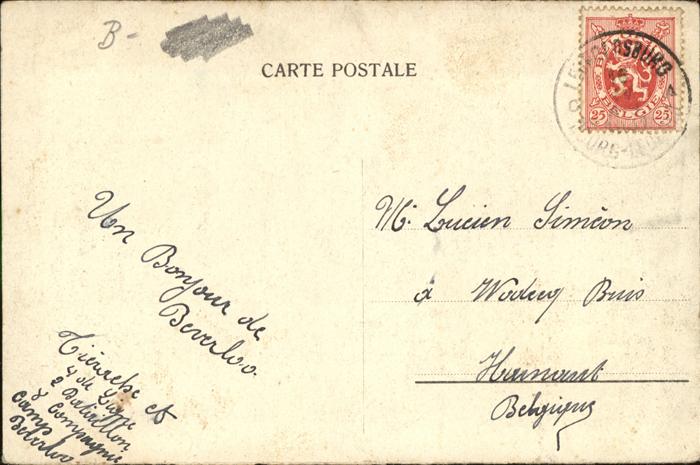 B-
CARTE POSTALE
BELGIE
25 25
Un Bonjour de
Beverloo
et
4 de Ligne
2 Bataillon
8 Compagnie
Camp
Beverloo
Mr Lucien Siméon
à Wodecq Buis
Hainaut
Belgique